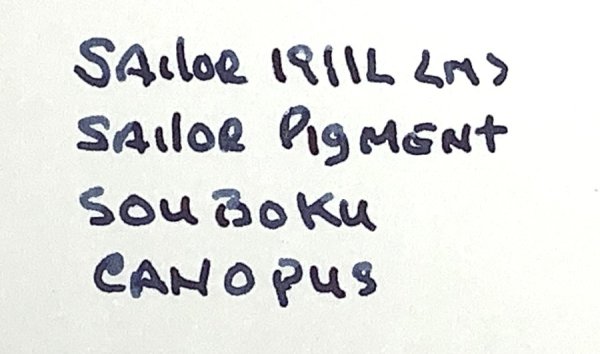 SAiloR 1911L <M>
SAiloR PigMENT
SOUBOKU
CANOPUS